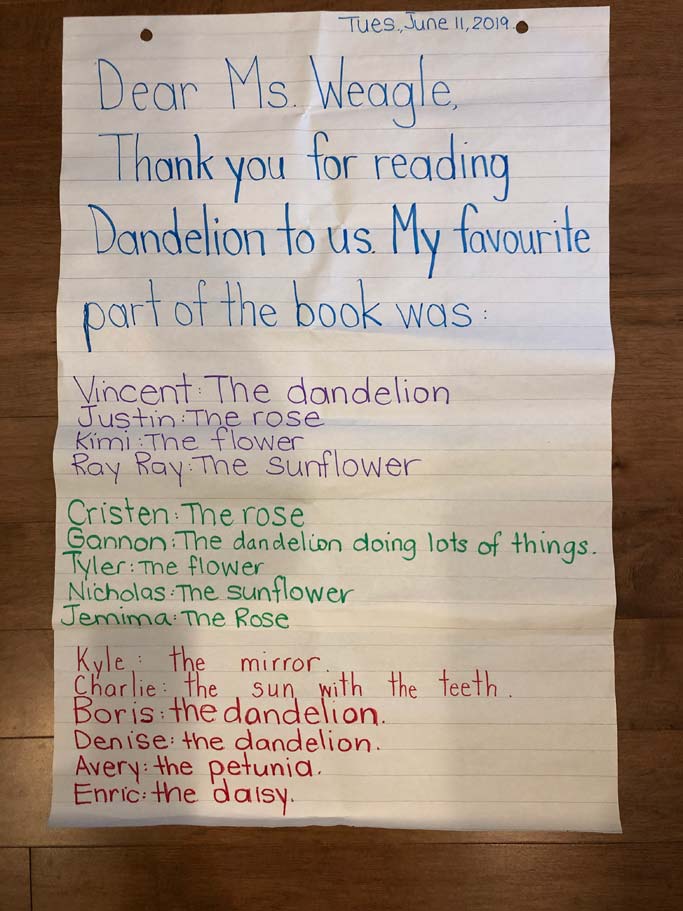 Tues., June 11, 2019.
Dear Ms. Weagle,
Thank you for reading
Dandelion to us. My favourite
part of the book was:
Vincent: The dandelion
Justin: The rose
Kimi: The flower
Ray Ray: The sunflower
Cristen: The rose
Gannon: The dandelion doing lots of things.
Tyler: The flower
Nicholas: The sunflower
Jemima: The Rose
Kyle: the mirror.
Charlie: the sun with the teeth.
Boris: the dandelion.
Denise: the dandelion.
Avery: the petunia.
Enric: the daisy.